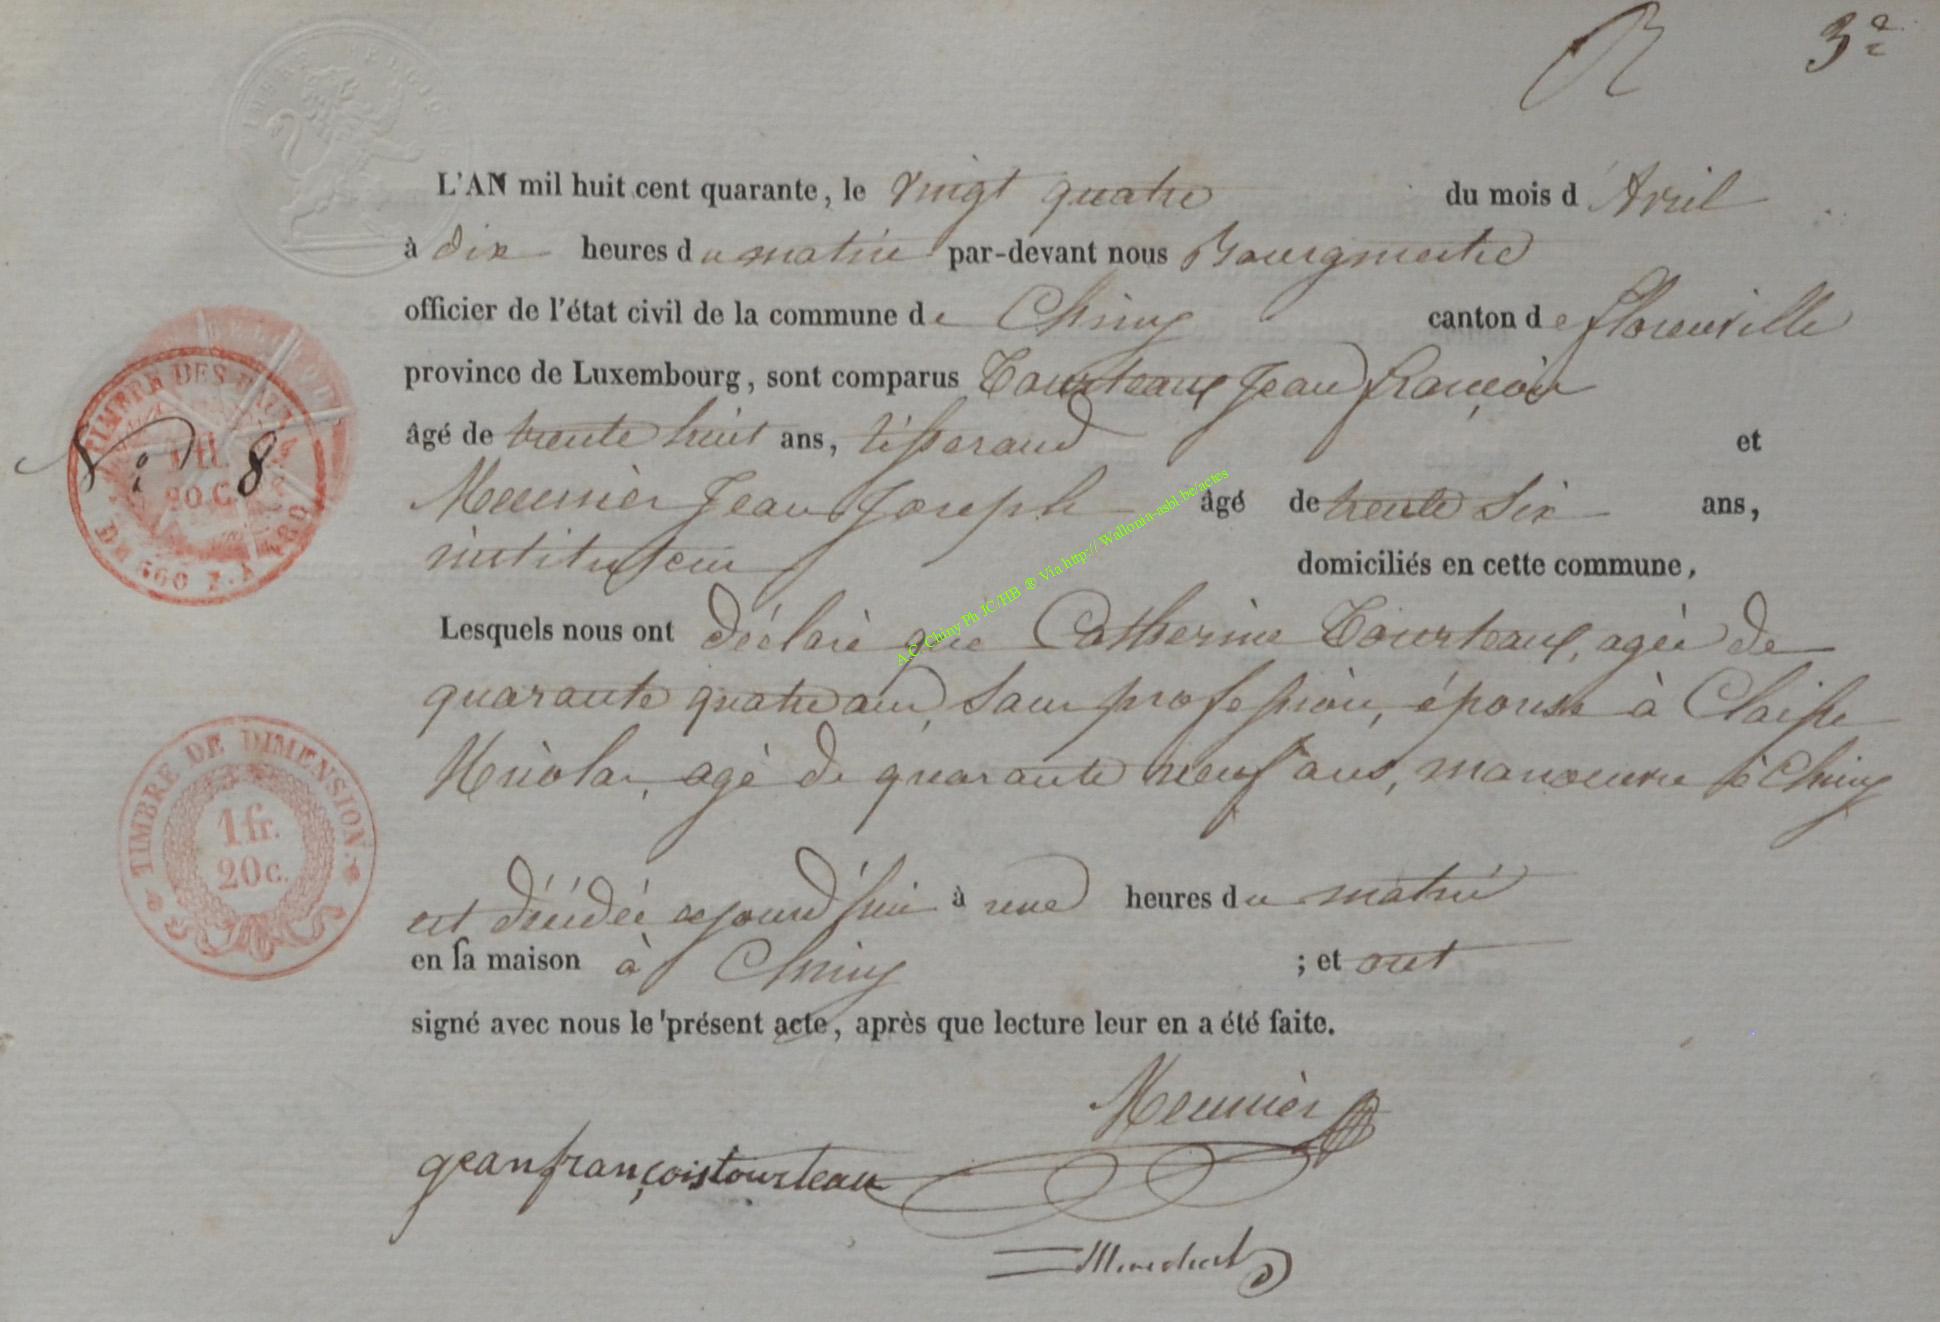 3e
L'AN mil huit cent quarante, le vingt quatre du mois d'Avril
à dix heures du matin par-devant nous Bourgmestre
officier de l'état civil de la commune de Chiny canton de florenville
province de Luxembourg, sont comparus Tourteaux Jean françois
âgé de trente huit ans, tisserand et
Meunier Jean Joseph âgé de trente six ans,
instituteur domiciliés en cette commune,
Lesquels nous ont déclaré que Catherine Tourteaux, agée de
quarante quatre ans, sans profession, épouse à Claisse
Nicolas, agé de quarante neuf ans, manoeuvre à Chiny
est décédée aujourd'hui à une heures du matin
en sa maison à Chiny ; et ont
signé avec nous le présent acte, après que lecture leur en a été faite.
Meunier
gean françois tourteau
No 8
TIMBRE DE DIMENSION.
1 fr.
20 c.
A.C Chiny Ph JC/HB ® Via http:// Wallonia-asbl be/actes